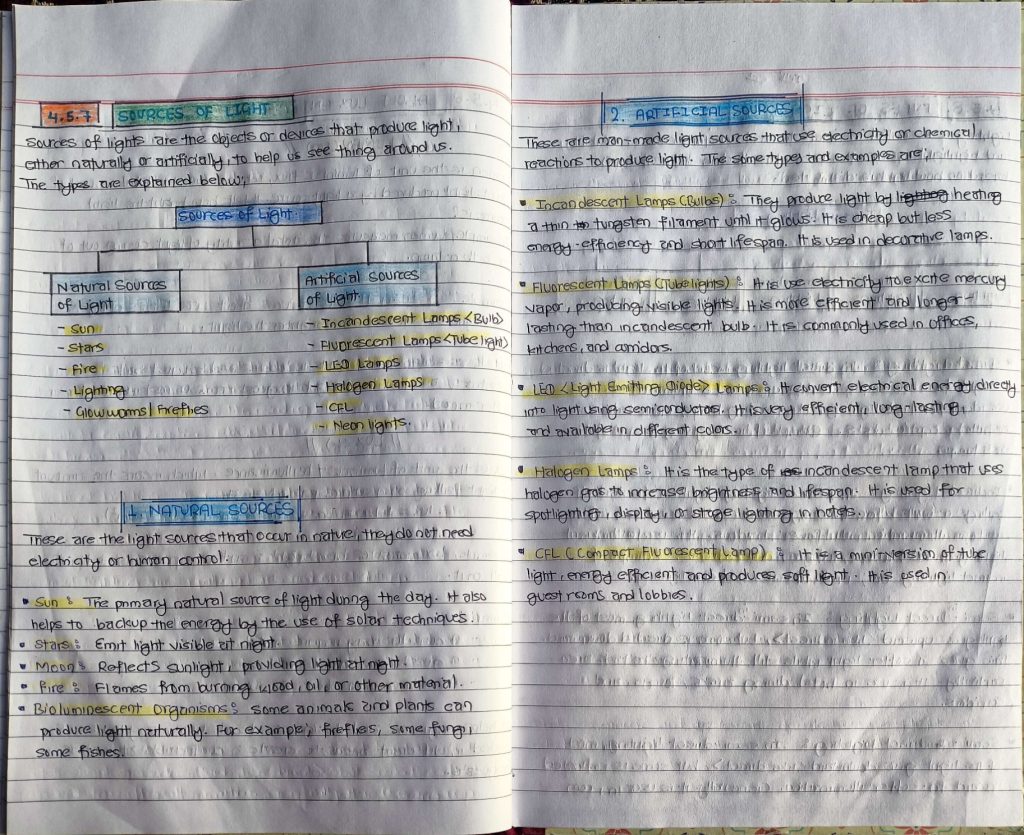 4.5.7 SOURCES OF LIGHT
Sources of lights are the objects or devices that produce light,
either naturally or artificially, to help us see thing around us.
The types are explained below;
Sources of Light
Natural Sources
of Light
- Sun
- Stars
- Fire
- Lighting
- Glowworms/Fireflies
Artificial Sources
of Light
- Incandescent Lamps <Bulb>
- Fluorescent Lamps <Tube light>
- LED Lamps
- Halogen Lamps
- CFL
- Neon lights.
1. NATURAL SOURCES
These are the light sources that occur in native, they do not need
electricity or human control.
• Sun : The primary natural source of light during the day. It also
helps to backup the energy by the use of solar techniques.
• Stars : Emit light visible at night.
• Moon : Reflects sunlight, providing light at night.
• Fire : Flames from burning wood, oil, or other material.
• Bioluminescent Organisms : Some animals and plants can
produce light naturally. For example; fireflies, some fungi,
some fishes.
2. ARTIFICIAL SOURCES
These are man-made light sources that use electricity or chemical
reactions to produce light. The some types and examples are;
• Incandescent Lamps (Bulbs) : They produce light by heating
a thin tungsten filament until it glows. It is cheap but less
energy-efficiency and short lifespan. It is used in decorative lamps.
• Fluorescent Lamps (Tube lights) : It is use electricity to excite mercury
vapor, producing visible lights. It is more efficient and longer-
lasting than incandescent bulb. It is commonly used in offices,
kitchens, and corridors.
• LED <Light Emitting Diode> Lamps : It convert electrical energy directly
into light using semiconductors. It is very efficient, long-lasting,
and available in different colors.
• Halogen Lamps : It is the type of incandescent lamp that uses
halogen gas to increase brightness and lifespan. It is used for
spotlighting, display, or stage lighting in hotels.
• CFL (Compact Fluorescent Lamp) : It is a mini version of tube
light, energy efficient and produces soft light. It is used in
guest rooms and lobbies.